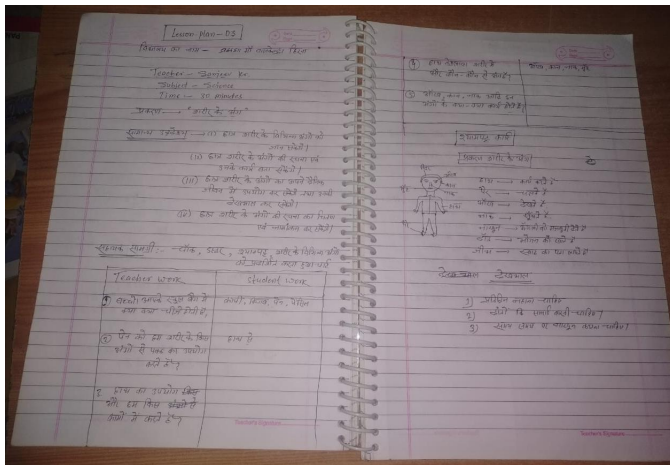 Lesson-Plan-03
विद्यालय का नाम -
Teacher - Sanjeev Kr.
Subject - Science
Time :- 30 minutes
प्रकरण → "शरीर के अंग"
सामान्य उद्देश्य → (i) छात्र शरीर के विभिन्न अंगों को
जान सकेंगे।
(ii) छात्र शरीर के अंगों की रचना एवं
उनके कार्य बता सकेंगे।
(iii) छात्र शरीर के अंगों का अपने दैनिक
जीवन में उपयोग कर सकेंगे तथा उनकी
देखभाल कर सकेंगे।
(iv) छात्र शरीर के अंगों की रचना का चित्रण
एवं नामांकन कर सकेंगे।
सहायक सामग्री :- चॉक, डस्टर, श्यामपट्ट, शरीर के विभिन्न अंगों
को प्रदर्शित करता हुआ चार्ट
Teacher work
Student work
① बच्चों आपके स्कूल बैग में
क्या क्या चीजें होती हैं,
कापी, किताब, पेन, पेंसिल
② पेन को हम शरीर के किस
अंगों से पकड़ कर उपयोग
करते हैं?
हाथ से
3 हाथ का उपयोग
और हम किस
कामों में करते हैं?
Teacher's Signature
④
और कौन-कौन से अंग हैं?
आँख, कान, नाक, पैर
⑤ आँख, कान, नाक आदि इन
अंगों के क्या-क्या कार्य होते हैं।
श्यामपट्ट कार्य
प्रकरण शरीर के अंग
हाथ → कार्य करते हैं
पैर → चलते हैं
आँख → देखते हैं
नाक → सूंघते हैं
दाँत → भोजन को चबाते हैं
जीभ → स्वाद का पता लगाते हैं
देखभाल
1)
2) अंगों कि सफाई करनी चाहिए।
3)
Teacher's Signature